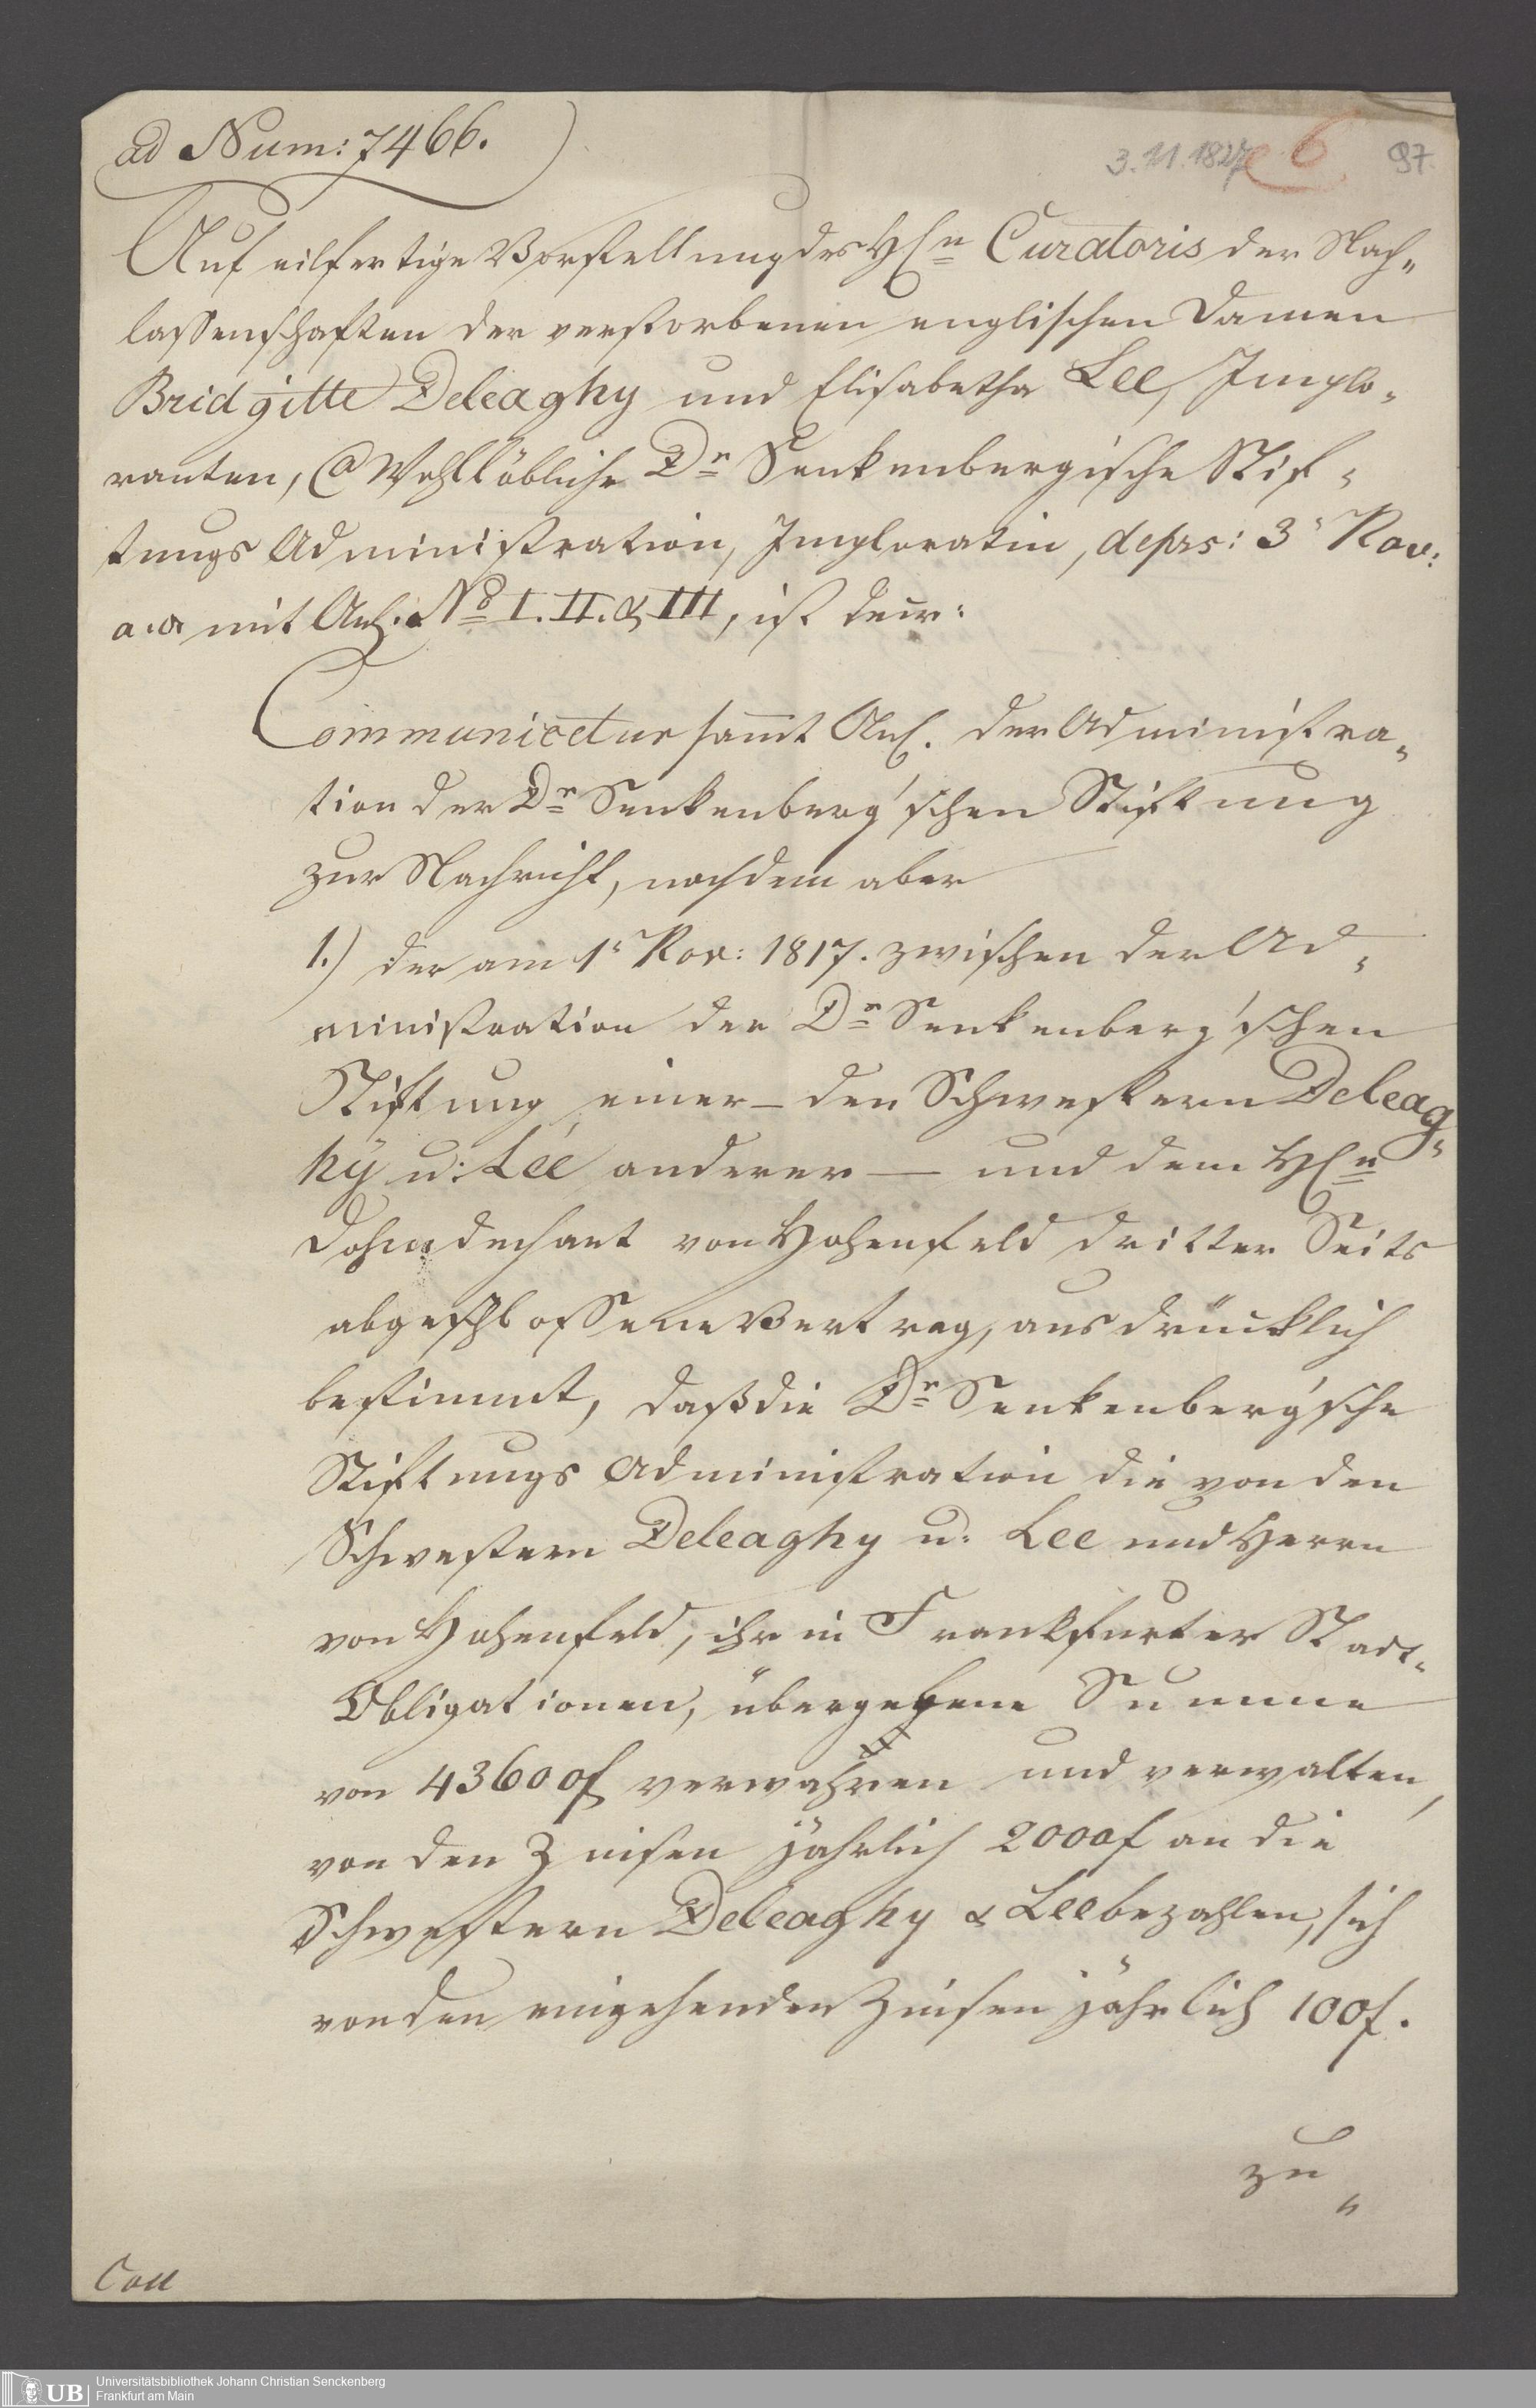 ad Num: 7466.
3.11.1827 6 97.
Auf eilfertige Vorstellung des Hℓn Curatoris der Nach„
lassenschaften der verstorbenen englischen Damen
Bridgitte Deleaghy und Elisabetha Lee, Implo„
ranten, Wohllöbliche Dr Senkenbergische Stif„
tungs Administration, Imploratin, de prs: 3' Nov:
a. c. mit Anl. No I. II. & III, ist decr:
Communicetur samt Anl. der Administra„
tion der Dr Senkenberg'schen Stiftung
zur Nachricht, nachdem aber
1.) der am 1' Nov: 1817. zwischen der Ad„
ministration der Dr Senkenberg'schen
Stiftung einer – den Schwestern Deleag„
hÿ u: Lee anderer — und dem Hℓn
Dohmdechant von Hohenfeld dritter Seits
abgeschlossene Vertrag, ausdrücklich
bestimmt, daß die Dr Senkenberg'sche
Stiftungs Administration die von den
Schwestern Deleaghy u. Lee und Herrn
von Hohenfeld, ihr in Frankfurter Stadt„
Obligationen, übergebene Summe
von 43600f verwahren und verwalten,
von den Zinsen jährlich 2000f an die
Schwestern Deleaghy & Lee bezahlen, sich
von den eingehenden Zinsen jährlich 100f.
zu„
Coll
UB Universitätsbibliothek Johann Christian Senckenberg
Frankfurt am Main